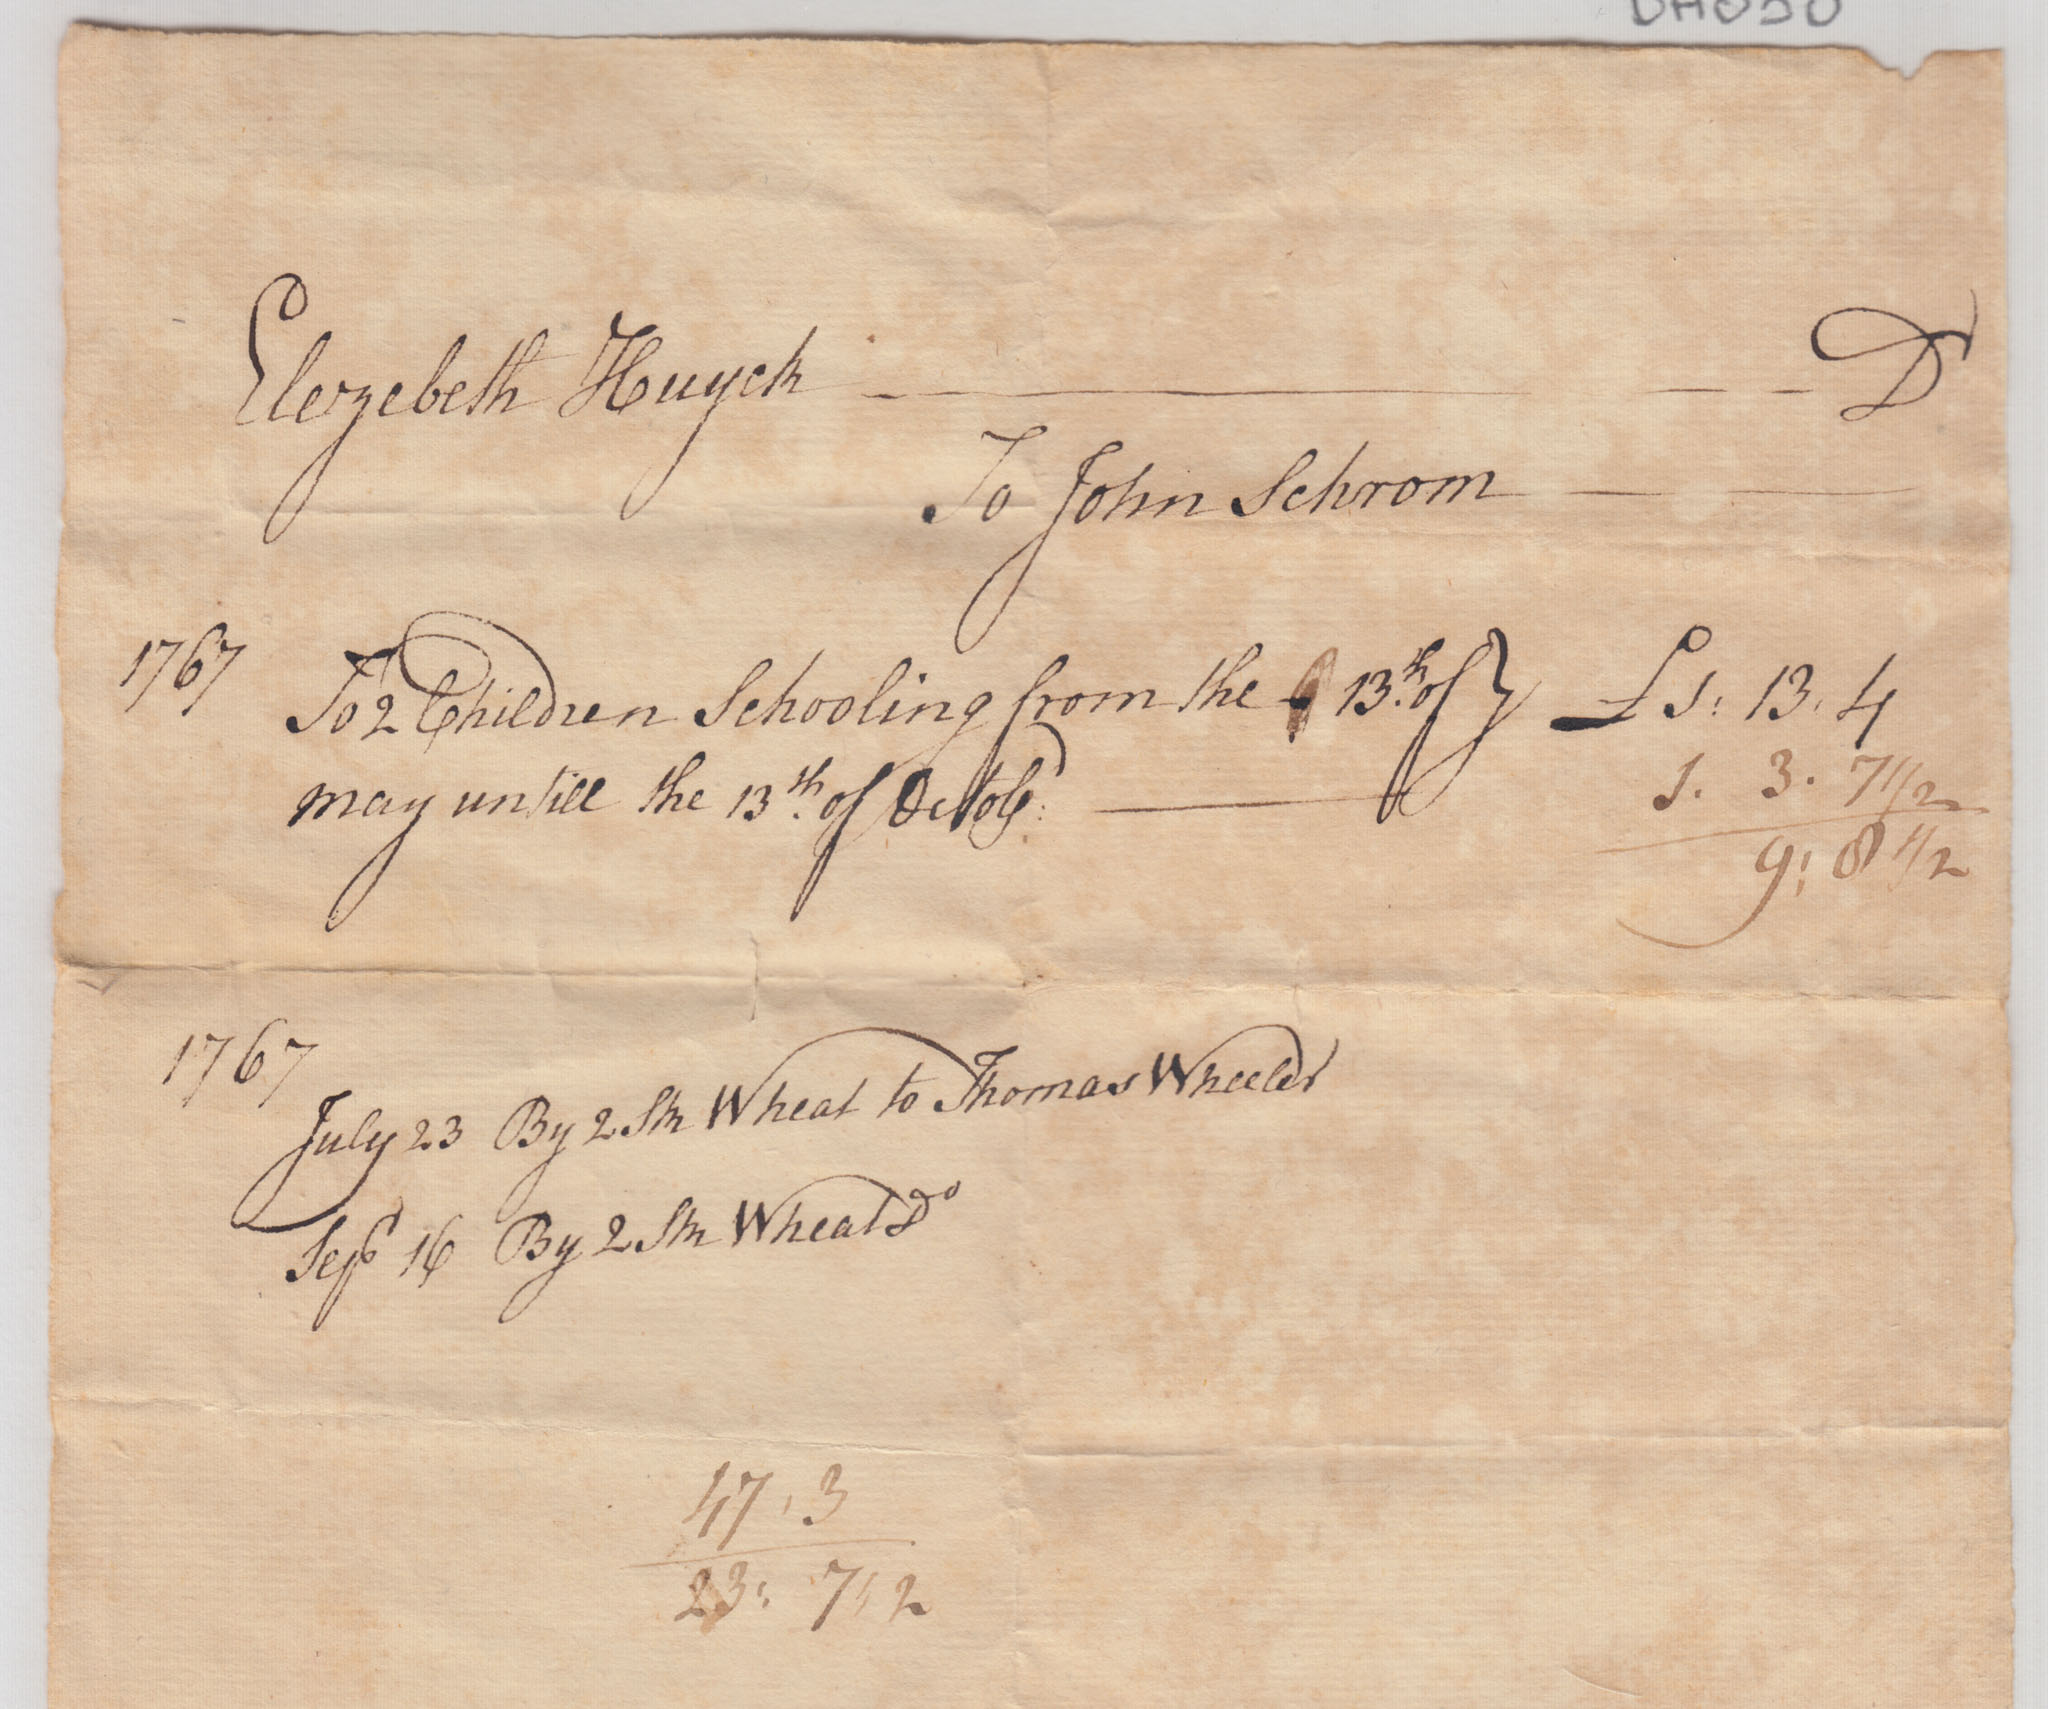 Elezebeth Huyck — — — D^r
To John Schrom — —
1767 To 2 Children Schooling from the 13^th. of } £ 1: 13: 4
may untill the 13^th. of Octob^r: — 1. 3. 7 1/2
9: 8 1/2
1767
July 23 By 2 Sk Wheat to Thomas Wheeler
Sep^t 16 By 2 Sk Wheat D^o
47: 3
23: 7 1/2